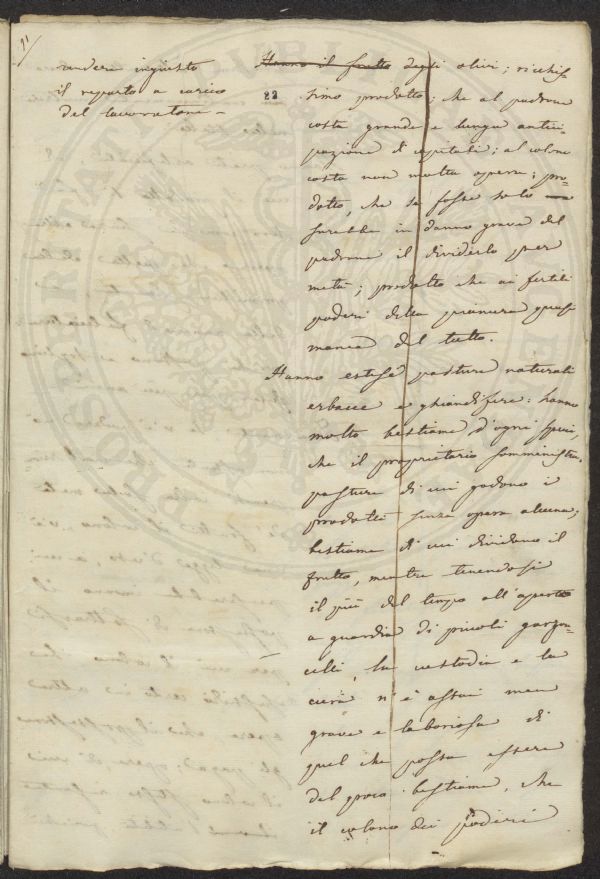 21
rendere ingiusto
il reparto a carico
del lavoratore –
22
Hanno il frutto degli olivi; ricchis-
simo prodotto; che al padrone
costa grande e lunga antici-
pazione di capitali; al colono
costa non molta opera; pro-
dotto, che se fosse solo
sarebbe in danno grave del
padrone il dividerlo per
metà; prodotto che ai fertili
poderi della pianura quasi
manca del tutto.
Hanno estese pasture naturali
erbacee e ghiandifere: hanno
molto bestiame d'ogni specie,
che il proprietario somministra.
pasture di cui godono i
prodotti senza opera alcuna;
bestiame di cui dividono il
frutto, mentre tenendosi
il più del tempo all'aperto
a guardia di piccoli garzon-
celli, la custodia e la
cura n'è assai men
grave e laboriosa di
quel che possa essere
del poco bestiame, che
il colono dei poderi